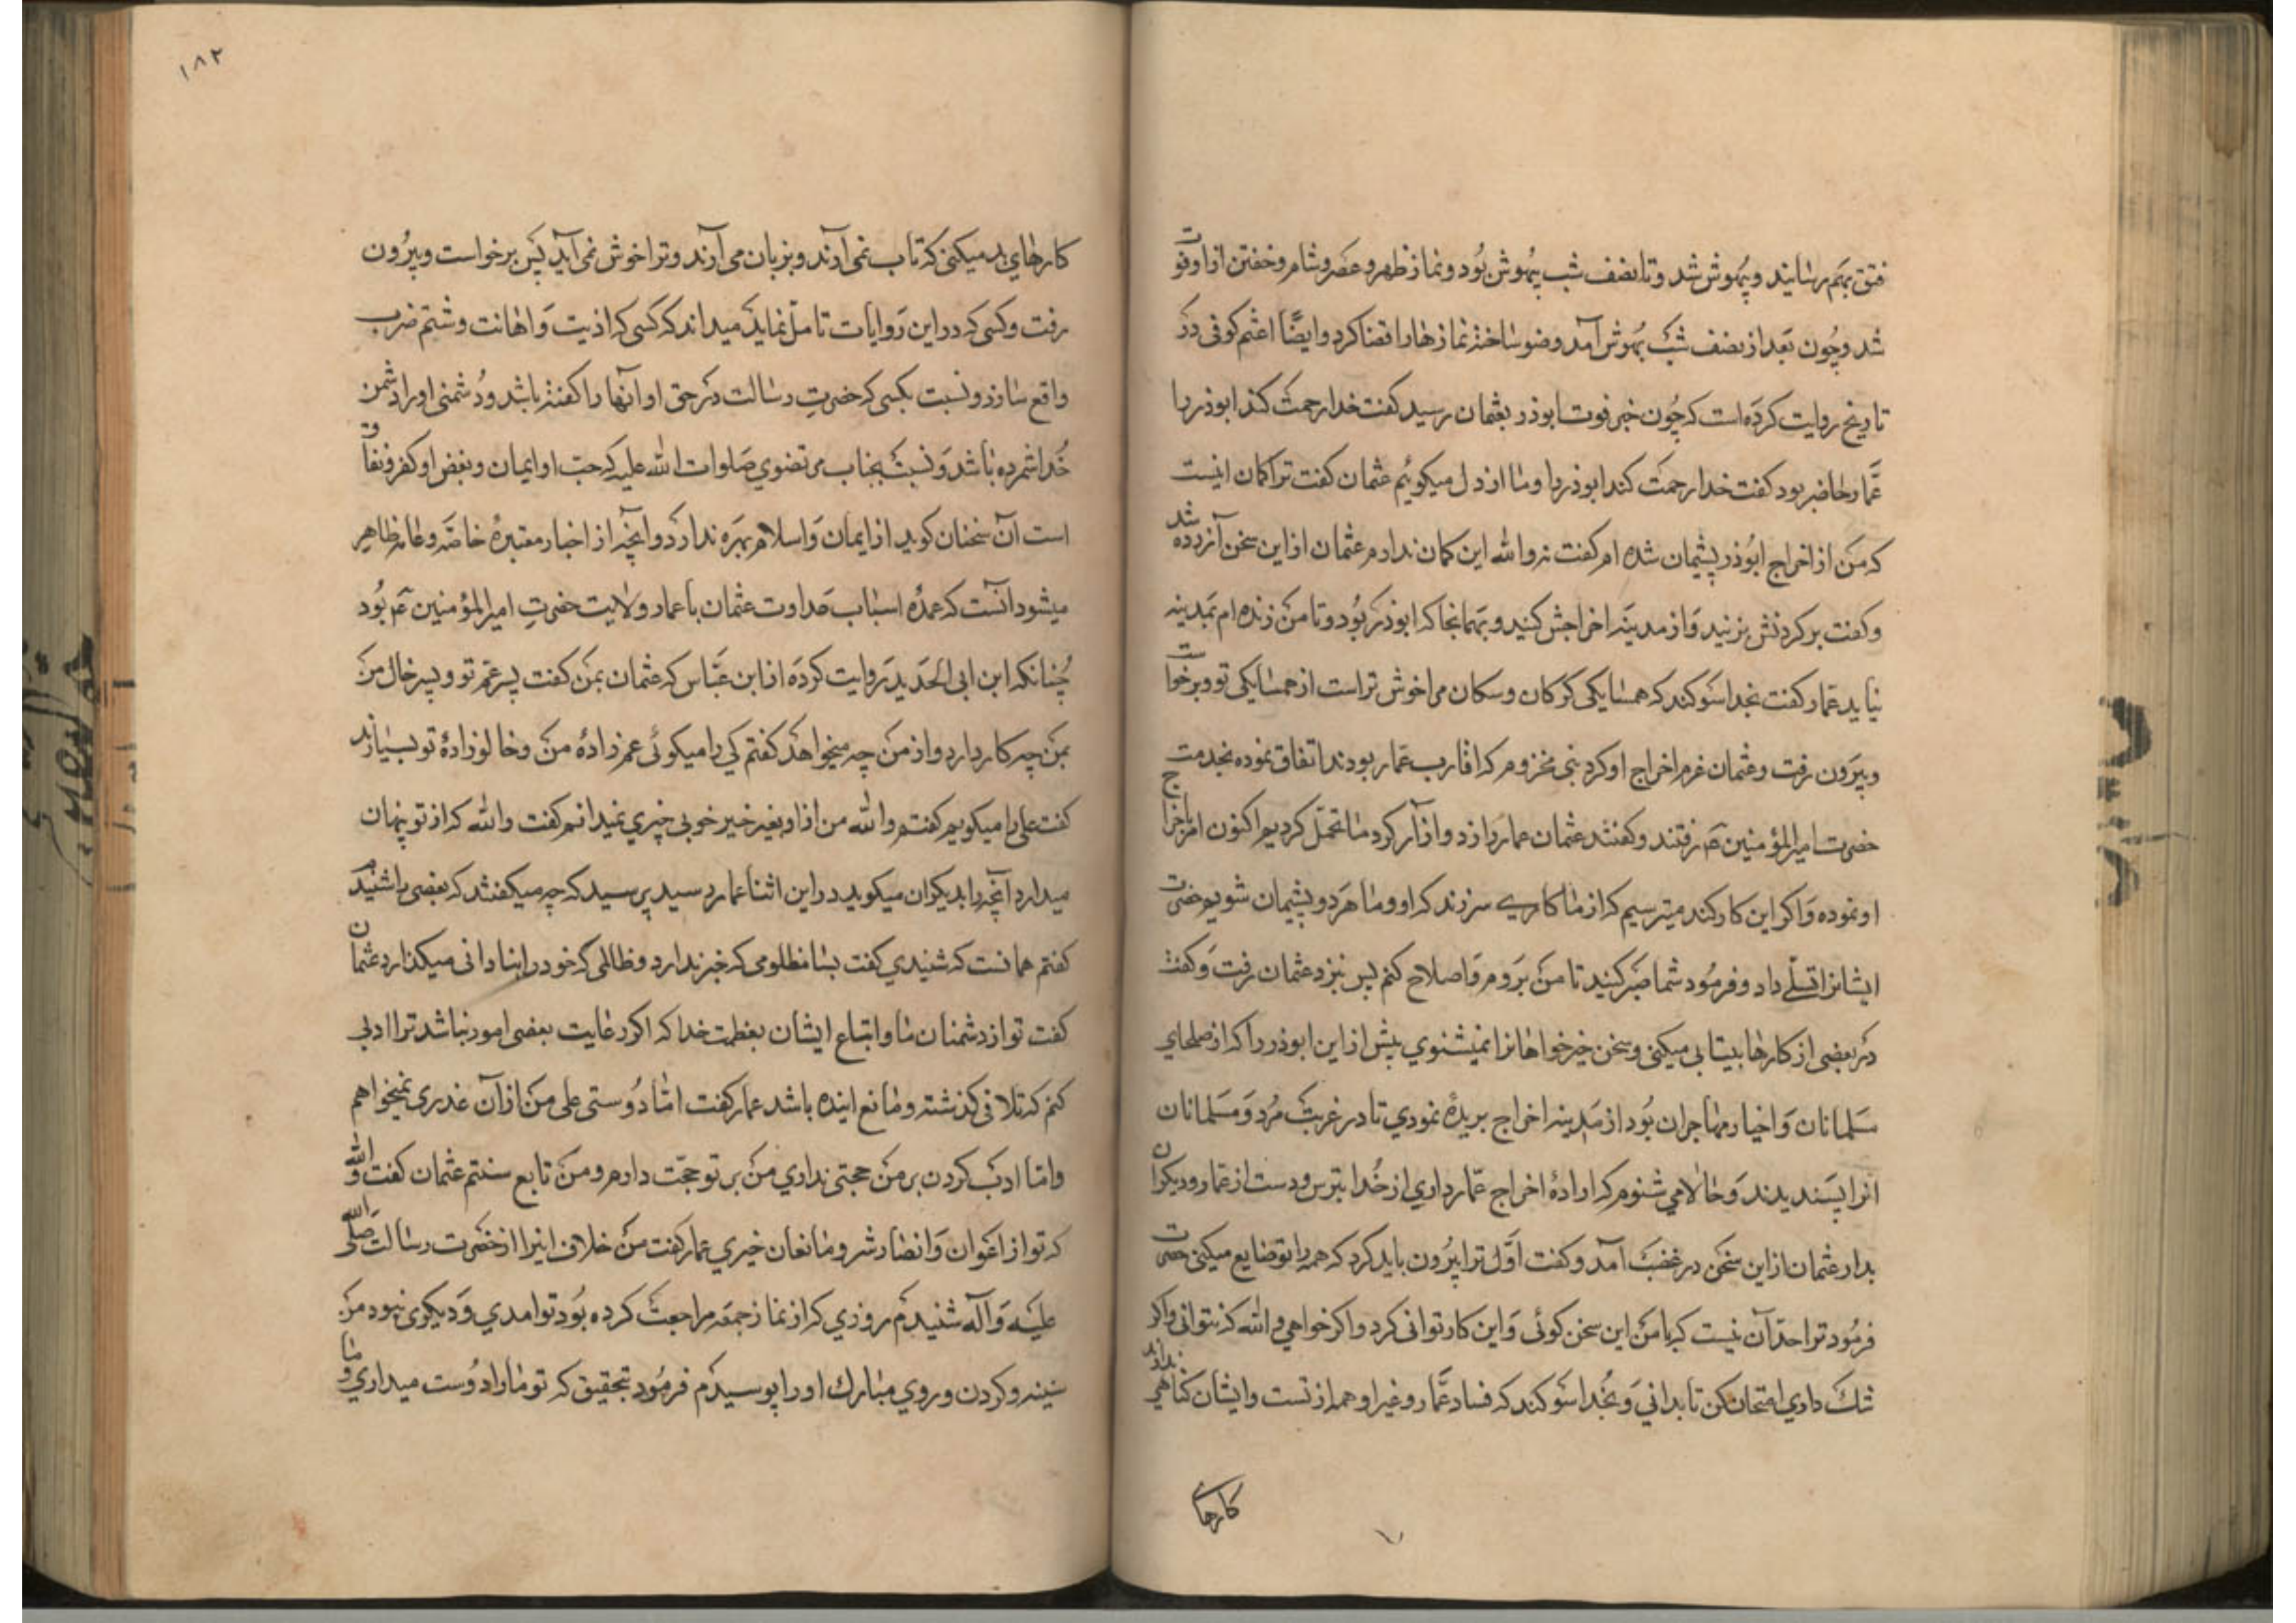 فتق بهم رسانید و بیهوش شد و تا نصف شب بیهوش بود و نماز ظهر و عصر و شام و خفتن از او فوت
شد و چون بعد از نصف شب بهوش آمد وضو ساخته نمازها را قضا کرد و ایضًا اعثم کوفی در
تاریخ روایت کرده است که چون خبر فوت ابوذر بعثمان رسید کفت خدا رحمت کند ابوذر را
عمّار حاضر بود کفت خدا رحمت کند ابوذر را و ما از دل میکوئیم عثمان کفت ترا کمان اینست
که من از اخراج ابوذر پشیمان شده ام کفت نه والله این کمان ندارم عثمان از این سخن آزرده شد
و کفت بر کردنش بزنید و از مدینه اخراجش کنید و بهمانجا که ابوذر بود و تا من زنده ام بمدینه
نیاید عمّار کفت بخدا سوکند که همسایکی کرکان و سکان مرا خوش تر است از همسایکی تو و برخواست
و بیرون رفت و عثمان عزم اخراج او کرد بنی مخزوم که اقارب عمّار بودند اتفاق نموده بخدمت
حضرت امیر المؤمنین ع رفتند و کفتند عثمان عمار را زد و آزار کرد ما تحمّل کردیم اکنون امر باخراج
او نموده و اکر این کار کند میترسیم که از ما کاری سر زند که او و ما هر دو پشیمان شویم حضرت
ایشانرا تسلّی داد و فرمود شما صبر کنید تا من بروم و اصلاح کنم پس بنزد عثمان رفت و کفت
در بعضی از کارها بیتابی میکنی و سخن خیر خواهانرا نمیشنوی پیش از این ابوذر را که از صلحای
مسلمانان و اخیار مهاجران بود از مدینه اخراج بربذه نمودی تا در غربت مرد و مسلمانان
انرا پسندیدند و حالا می شنوم که ارادهٔ اخراج عمّار داری از خدا بترس و دست از عمّار و دیکران
بدار عثمان از این سخن در غضب آمد و کفت اوّل ترا بیرون باید کرد که همه را تو ضایع میکنی حضرت
فرمود ترا حدّ آن نیست که با من این سخن کوئی و این کار توانی کرد و اکر خواهی والله که نتوانی و اکر
شک داری امتحان کن تا بدانی و بخدا سوکند که فساد عمّار و غیر او همه از تست و ایشان کناهی ندارند
کارهای
۱۸۲
کارهای بد میکنی که تاب نمی آرند و بزبان می آرند و ترا خوش نمی آید پس برخواست و بیرون
رفت و کسی که در این روایات تامل نماید میداند که کسی که اذیت و اهانت و شتم ضرب
واقع سازد و نسبت بکسی که حضرت رسالت در حق او انها را کفته باشد و دشمنی او را دشمن
خدا شمرده باشد و نسبت بجناب مرتضوی صلوات الله علیه که حب او ایمان و بغض او کفر و نفاق
است آن سخنان کوید از ایمان و اسلام بهره ندارد و انچه از اخبار معتبرهٔ خاصه و عامه ظاهر
میشود انست که عمدهٔ اسباب عداوت عثمان با عمار ولایت حضرت امیر المؤمنین ع بود
چنانکه ابن ابی الحدید روایت کرده از ابن عبّاس که عثمان بمن کفت پسر عم تو و پسر خال من
بمن چه کار دارد و از من چه میخواهد کفتم کی را میکوئی عم زادهٔ من و خالو زادهٔ تو بسیارند
کفت علی را میکویم کفتم والله من از او بغیر خیر خوبی چیزی نمیدانم کفت والله که از تو پنهان
میدارد آنچه را بدیکران میکوید در این اثنا عمار رسید پرسید که چه میکفتند که بعضی را شنیدم
کفتم همانست که شنیدی کفت بسا مظلومی که خبر ندارد و ظالمی که خود را بنادانی میکذارد عثمان
کفت تو از دشمنان ما و اتباع ایشان بعظمت خدا که اکر رعایت بعضی امور نباشد ترا ادبی
کنم که تلافی کذشته و مانع اینده باشد عمار کفت امّا دوستی علی من از آن عذری نمیخواهم
و امّا ادب کردن بر من حجتی نداری من بر تو حجّت دارم و من تابع سنتم عثمان کفت والله
که تو از اعوان و انصار شر و مانعان خیری عمار کفت من خلاف اینرا از حضرت رسالت صلی الله
علیه و آله شنیدم روزی که از نماز جمعه مراجعت کرده بود تو امدی و دیکری نبود من
سینه و کردن و روی مبارک او را بوسیدم فرمود بتحقیق که تو ما را دوست میداری و ما